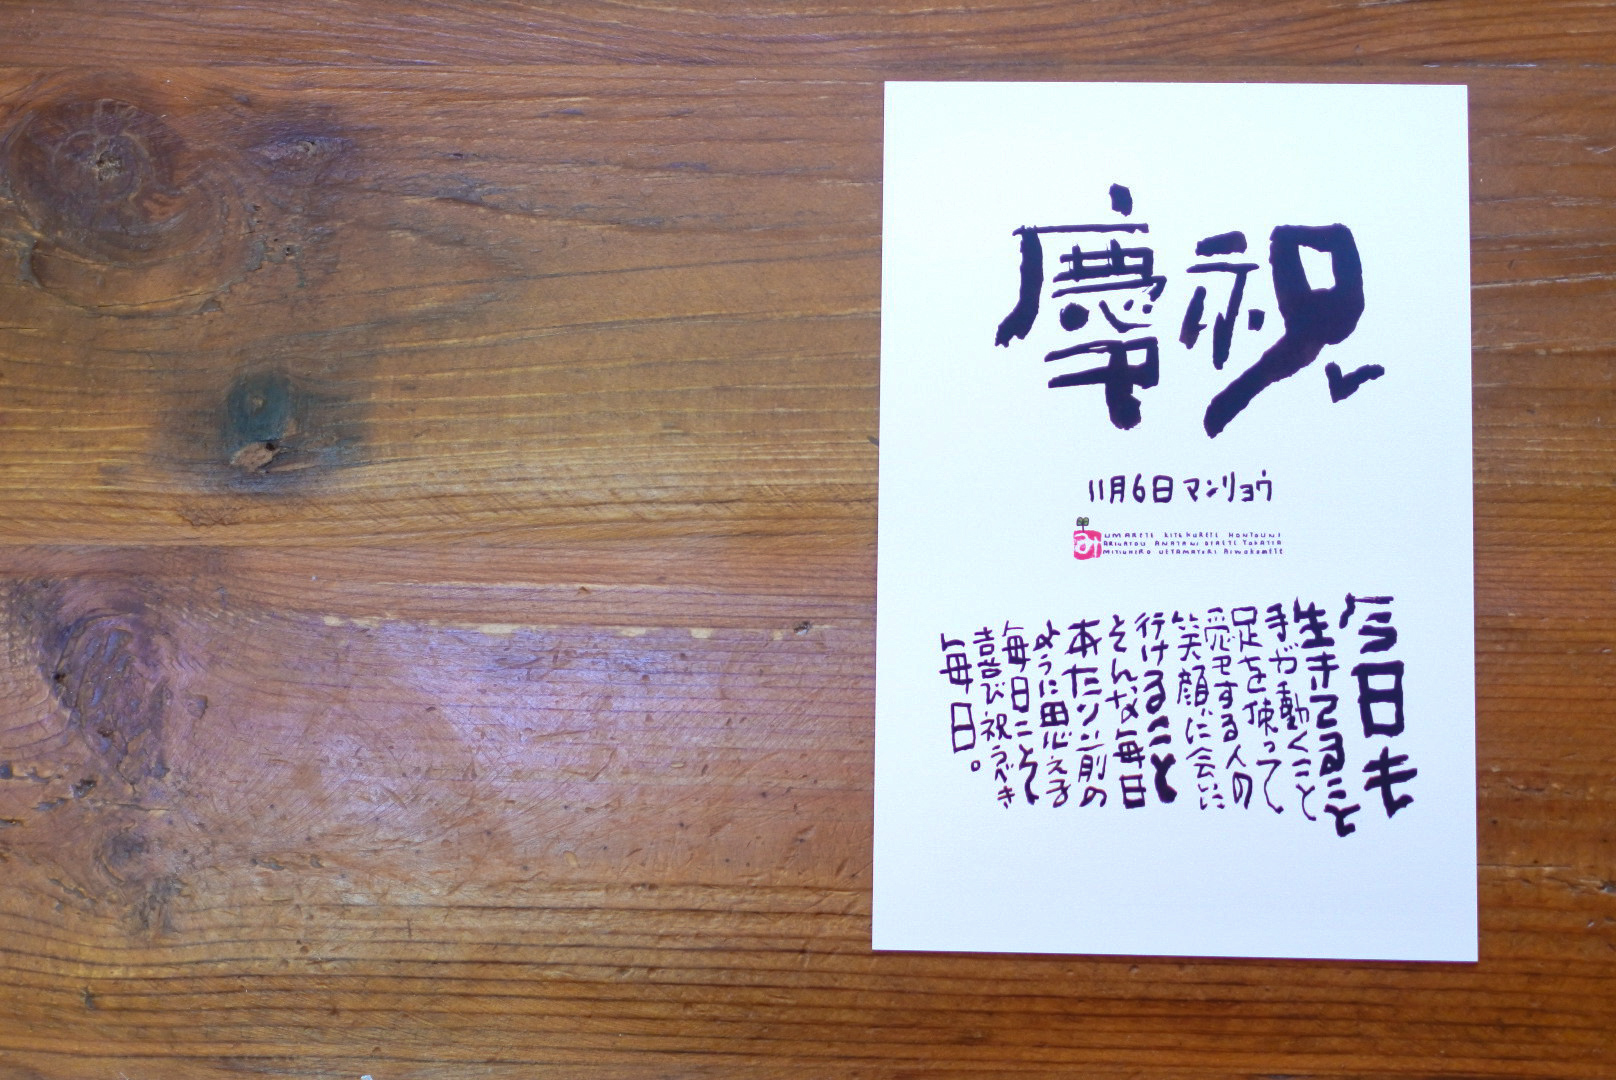 慶祝
11月6日 マンリョウ
み
UMARETE KITEKURETE HONTOUNI
ARIGATOU ANATANI DEAETE YOKATTA
MITUHIRO UETAMATURI AIWOKOMETE
今日も
生きてること
手が動くこと
足を使って
愛する人の
笑顔に会いに
行けること
そんな毎日
本たり前の
ように思える
毎日こそ
喜び祝うべき
毎日。